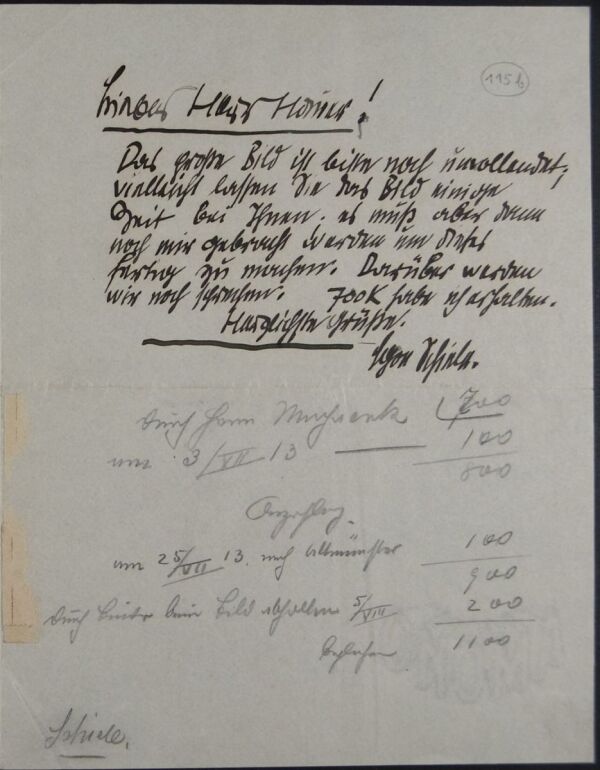 115b
Lieber Herr Hauer!
Das große Bild ist bitte noch unvollendet;
vielleicht lassen Sie das Bild einige
Zeit bei Ihnen. es muß aber dann
noch mir gebracht werden um dieses
fertig zu machen. Darüber werden
wir noch sprechen. 700K habe ich erhalten.
Herzlichste Grüße.
Egon Schiele.
durch Herrn 700
am 3/VII 13 — 100
800
Anzahlung
am 25/VII 13. nach Altmünster 100
900
durch beim Bild abholen 5/VIII 200
beglichen 1100
Schiele.